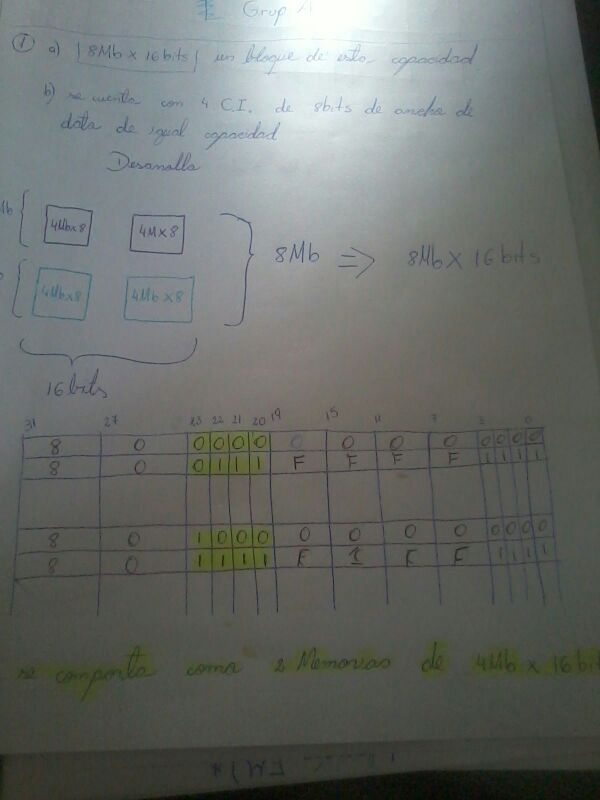 Grup A
① a) 8Mb x 16bits un bloque de esta capacidad
b) se cuenta con 4 C.I. de 8bits de ancho de
data de igual capacidad
Desarrollo
4Mbx8 4Mx8
8Mb => 8Mb x 16bits
4Mbx8 4Mbx8
16bits
31 27 23 22 21 20 19 15 11 7 3 0
8 0 0 0 0 0 0 0 0 0 0 0 0 0
8 0 0 1 1 1 F F F F 1 1 1 1
8 0 1 0 0 0 0 0 0 0 0 0 0 0
8 0 1 1 1 1 F F F F 1 1 1 1
se comporta como 2 Memorias de 4Mb x 16bit